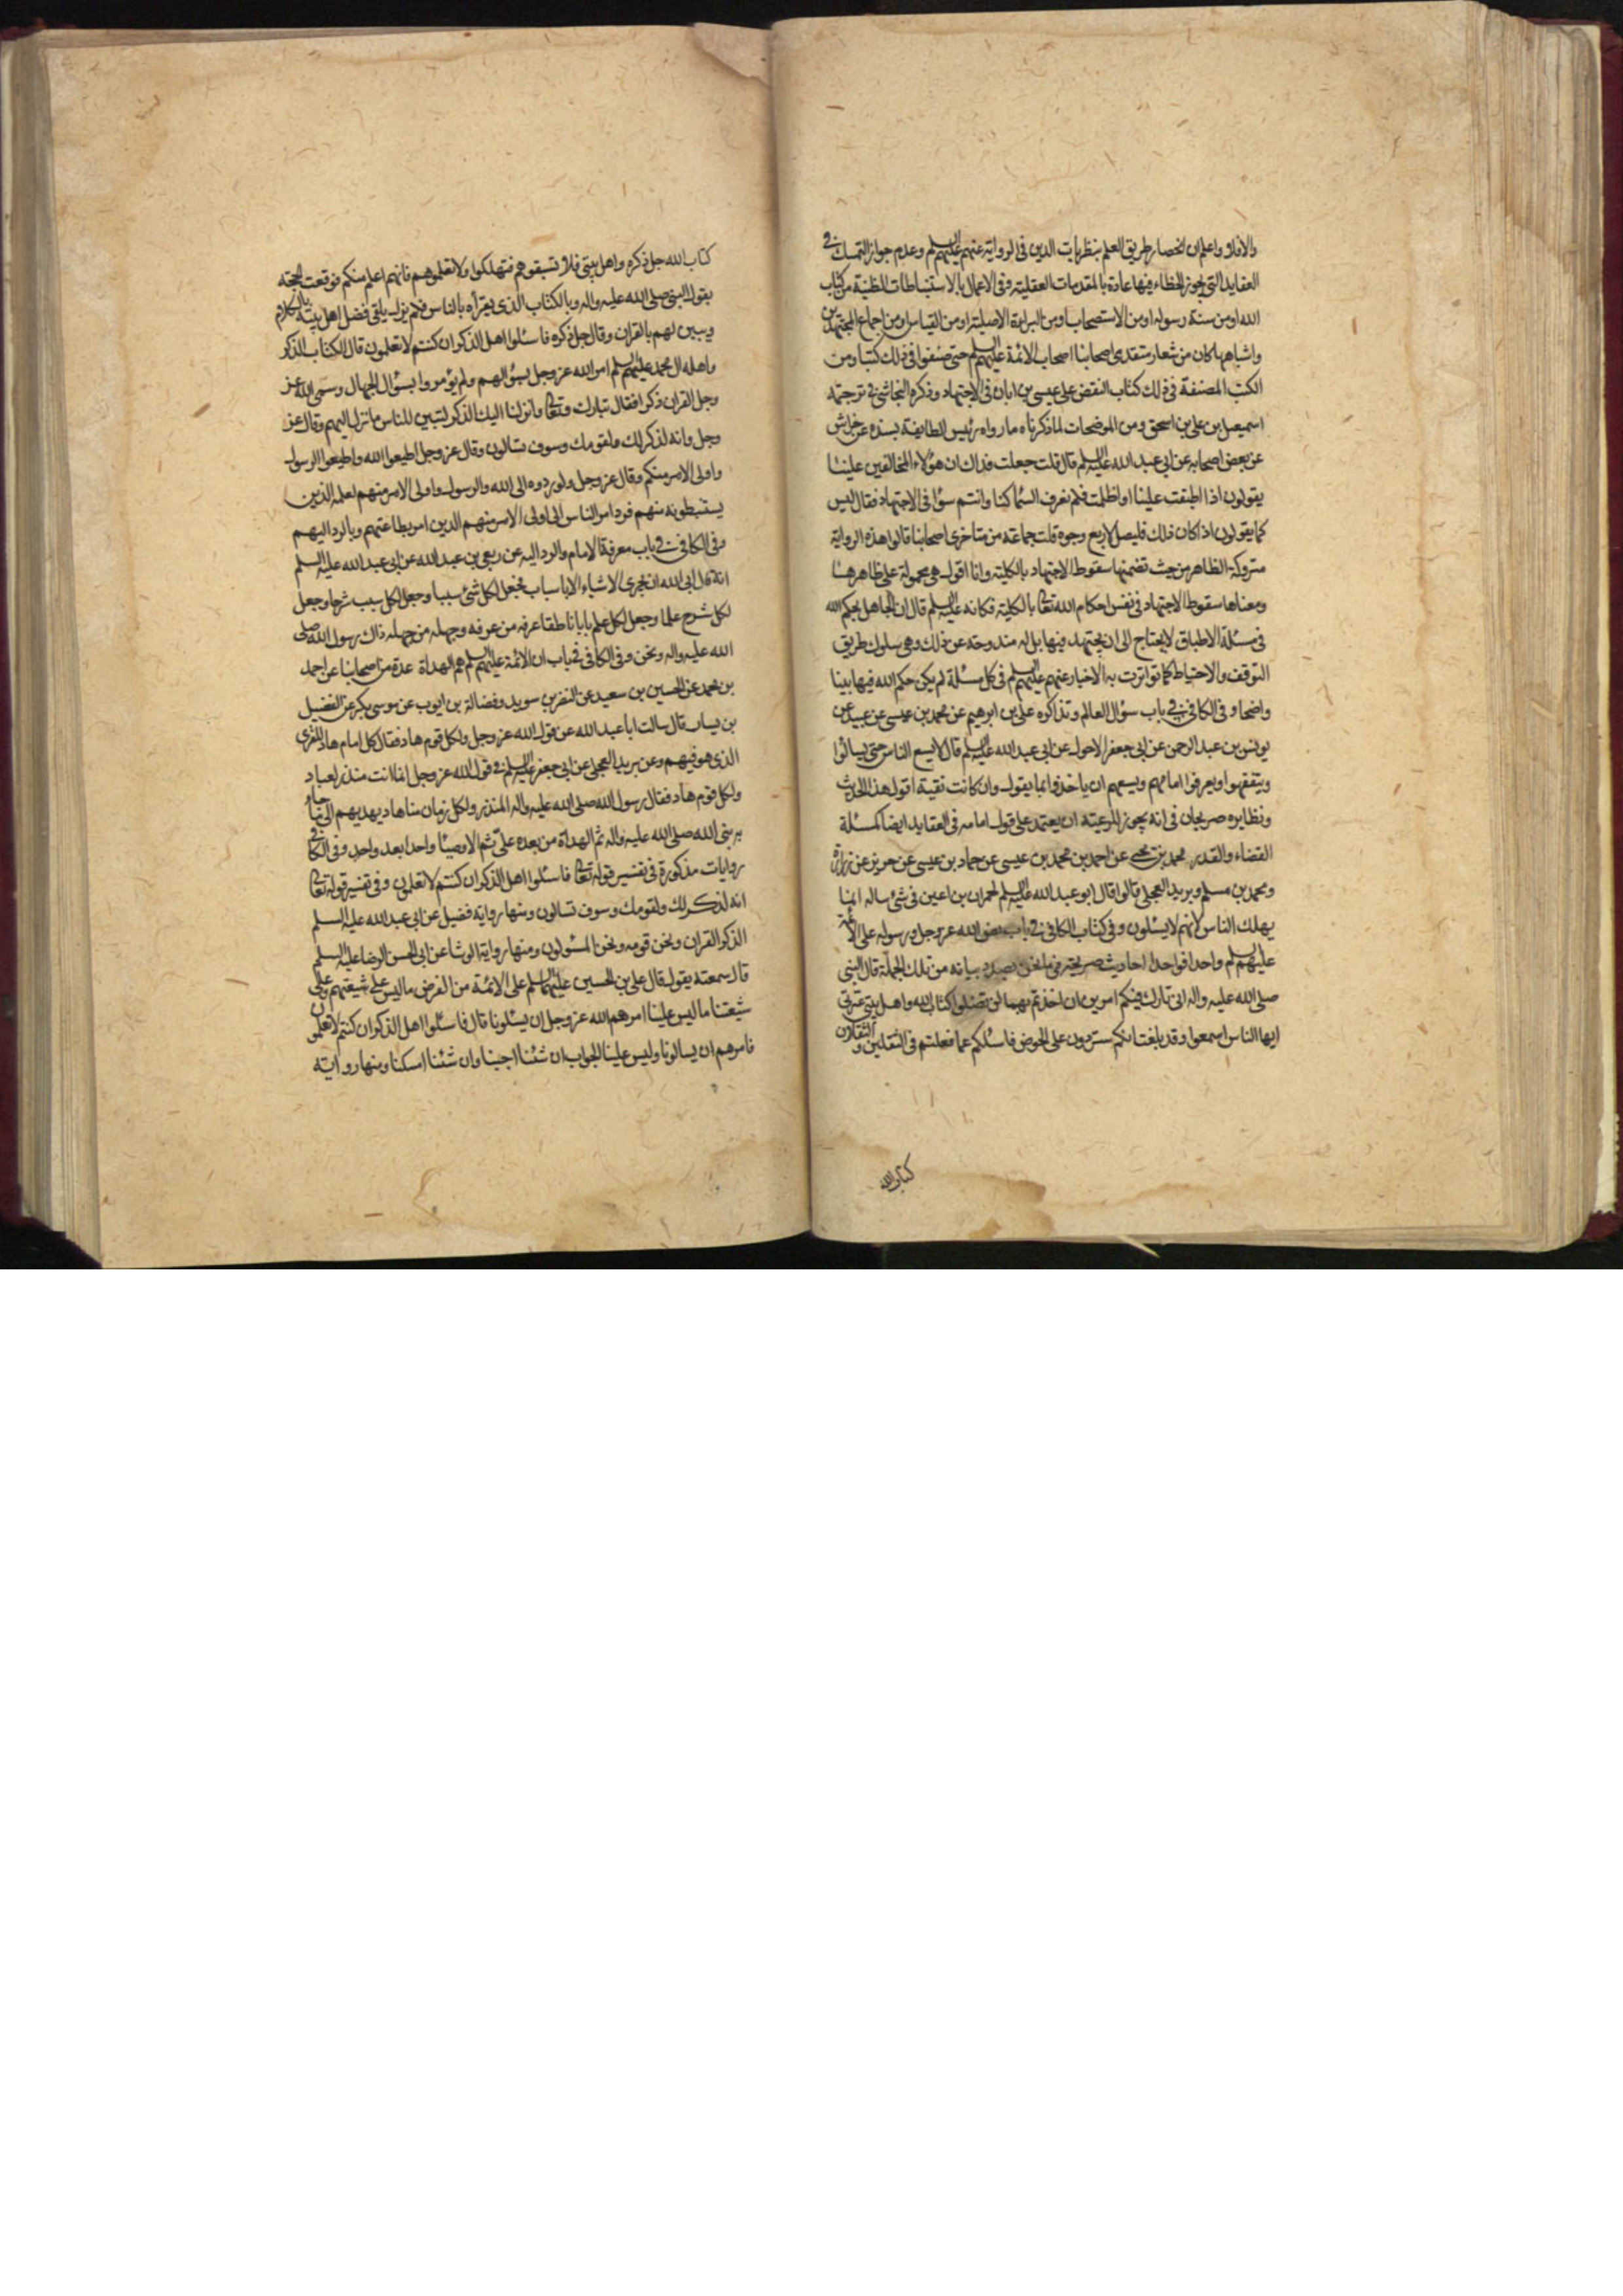 والا فلا واعلم ان انحصار طريق العلم بنظريات الدين فى الرواية عنهم عليهم السلم وعدم جواز التمسك فى
العقايد التى يجوز الخطاء فيها عادة بالمقدمات العقلية وفى الاعمال بالاستنباطات الظنية من كتاب
الله او من سنة رسوله او من الاستصحاب او من البراءة الاصلية او من القياس او من اجماع المجتهدين
واشباهها كان من شعار متقدى اصحابنا اصحاب الائمة عليهم السلم حتى صنفوا فى ذلك كتبا ومن
الكتب المصنفة فى ذلك كتاب النقض على عيسى بن ابان فى الاجتهاد وذكره النجاشى فى ترجمة
اسمعيل بن على بن اسحق ومن الموضحات لما ذكرناه ما رواه رئيس الطايفة بسنده عن خراش
عن بعض اصحابه عن ابى عبد الله عليه السلم قال قلت جعلت فداك ان هؤلاء المخالفين علينا
يقولون اذا اطبقت علينا او اظلمت فلم نعرف السماء كنا وانتم سواء فى الاجتهاد فقال ليس
كما يقولون اذ كان ذلك فليصل لاربع وجوه قلت جماعة من متاخرى اصحابنا قالوا هذه الرواية
متروكة الظاهر من حيث تضمنها سقوط الاجتهاد بالكلية وانا اقول هى محمولة على ظاهرها
ومعناها سقوط الاجتهاد فى نفس احكام الله تعالى بالكلية فكانه عليه السلم قال ان الجاهل بحكم الله
فى مسئلة الاطباق لا يحتاج الى ان يجتهد فيها بل له مندوحة عن ذلك وهى سلوك طريق
التوقف والاحتياط كما تواترت به الاخبار عنهم عليهم السلم فى كل مسئلة لم يكن حكم الله فيها بينا
واضحا وفى الكافى فى باب سؤال العالم وتذاكره على بن ابرهيم عن محمد بن عيسى عن عبيد عن
يونس بن عبد الرحمن عن ابى جعفر الاحول عن ابى عبد الله عليه السلم قال لا يسع الناس حتى يسالوا
ويتفقهوا ويعرفوا امامهم ويسعهم ان ياخذوا بما يقول وان كانت تقية اقول هذا الحديث
ونظايره صريحان فى انه يجوز للرعية ان يعتمد على قول امامه فى العقايد ايضا كمسئلة
القضاء والقدر محمد بن يحيى عن احمد بن محمد بن عيسى عن حماد بن عيسى عن حريز عن زرارة
ومحمد بن مسلم وبريد العجلى قالوا قال ابو عبد الله عليه السلم لحمران بن اعين فى شئ ساله انما
يهلك الناس لانهم لا يسئلون وفى كتاب الكافى فى باب نص الله عز وجل ورسوله على الائمة
عليهم السلم واحدا فواحدا احاديث صريحة فى ما نحن بصدد بيانه من تلك الجملة قال النبى
صلى الله عليه واله انى تارك فيكم امرين ان اخذتم بهما لن تضلوا كتاب الله واهل بيتى عترتى
ايها الناس اسمعوا وقد بلغت انكم ستردون على الحوض فاسئلكم عما فعلتم فى الثقلين والثقلان
كتاب الله
كتاب الله جل ذكره واهل بيتى فلا تسبقوهم فتهلكوا ولا تعلموهم فانهم اعلم منكم فوقعت الحجة
بقول النبى صلى الله عليه واله وبالكتاب الذى يقرأه بالناس فلم يزل يلقى فضل اهل بيته بالكلام
ويبين لهم بالقران وقال جل ذكره فاسئلوا اهل الذكر ان كنتم لا تعلمون قال الكتاب الذكر
واهله ال محمد عليهم السلم امر الله عز وجل بسؤالهم ولم يؤمروا بسؤال الجهال وسمى الله عز
وجل القران ذكرا فقال تبارك وتعالى وانزلنا اليك الذكر لتبين للناس ما نزل اليهم وقال عز
وجل وانه لذكر لك ولقومك وسوف تسالون وقال عز وجل اطيعوا الله واطيعوا الرسول
واولى الامر منكم وقال عز وجل ولو ردوه الى الله والرسول واولى الامر منهم لعلمه الذين
يستنبطونه منهم فرد امر الناس الى اولى الامر منهم الذين امر بطاعتهم وبالرد اليهم
وفى الكافى فى باب معرفة الامام والرد اليه عن ربعى بن عبد الله عن ابى عبد الله عليه السلم
انه قال ابى الله ان يجرى الاشياء الا باسباب فجعل لكل شئ سببا وجعل لكل سبب شرحا وجعل
لكل شرح علما وجعل لكل علم بابا ناطقا عرفه من عرفه وجهله من جهله ذاك رسول الله صلى
الله عليه واله ونحن وفى الكافى فى باب ان الائمة عليهم السلم هم الهداة عدة من اصحابنا عن احمد
بن محمد عن الحسين بن سعيد عن النضر بن سويد وفضالة بن ايوب عن موسى بكر عن الفضيل
بن يسار قال سالت ابا عبد الله عن قول الله عز وجل ولكل قوم هاد فقال كل امام هاد للقرن
الذى هو فيهم وعن بريد العجلى عن ابى جعفر عليه السلم فى قول الله عز وجل انما انت منذر لعباد
ولكل قوم هاد فقال رسول الله صلى الله عليه واله المنذر ولكل زمان منا هاد يهديهم الى ما جاء
به نبى الله صلى الله عليه واله ثم الهداة من بعده على ثم الاوصياء واحدا بعد واحد وفى الكافى
روايات مذكورة فى تفسير قوله تعالى فاسئلوا اهل الذكر ان كنتم لا تعلمون وفى تفسير قوله تعالى
انه لذكر لك ولقومك وسوف تسالون ومنها رواية فضيل عن ابى عبد الله عليه السلم
الذكر القران ونحن قومه ونحن المسئولون ومنها رواية الوشا عن ابى الحسن الرضا عليه السلم
قال سمعته يقول قال على بن الحسين عليهما السلم على الائمة من الفرض ما ليس على شيعتهم وعلى
شيعتنا ما ليس علينا امرهم الله عز وجل ان يسئلونا قال فاسئلوا اهل الذكر ان كنتم لا تعلمون
فامرهم ان يسالونا وليس علينا الجواب ان شئنا اجبنا وان شئنا امسكنا ومنها رواية